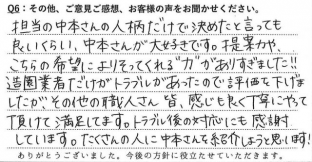 Q6：その他、ご意見ご感想、お客様の声をお聞かせください。
担当の中本さんの人柄だけで決めたと言っても
良いくらい、中本さんが大好きです。提案力や、
こちらの希望によりそってくれる"力"がありすぎました!!
造園業者だけがトラブルがあったので評価を下げま
したがその他の職人さん皆、感じも良く丁寧にやって
頂けて満足してます。トラブル後の対応にも感謝
しています。たくさんの人に中本さんを紹介しようと思います!
ありがとうございました。今後の方針に役立たせていただきます。